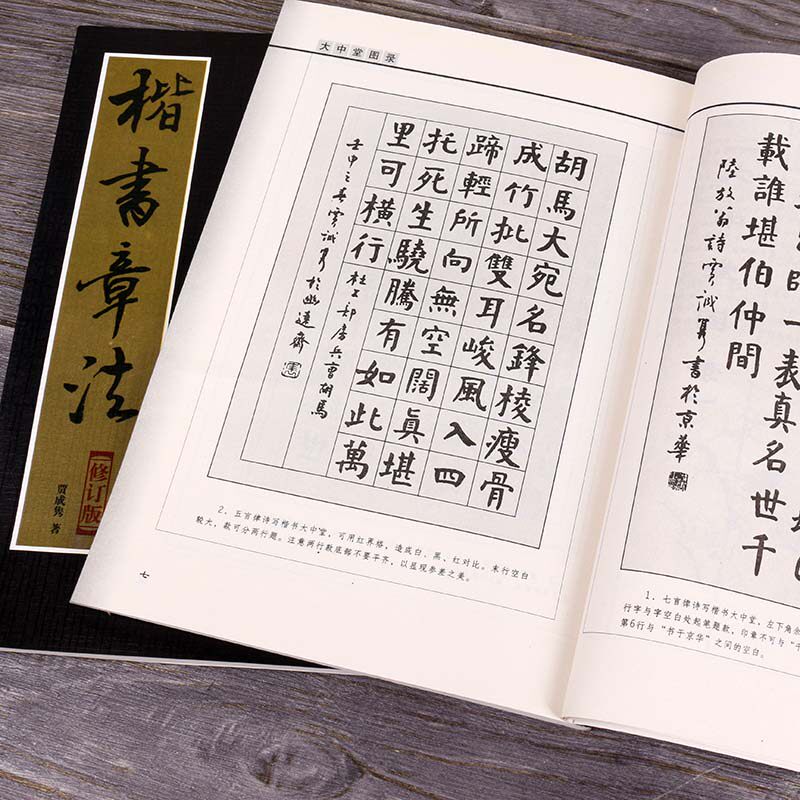 楷書章法
【修订版】
贾成隽 著
大中堂图录
胡馬大宛名鋒棱瘦骨
成竹批雙耳峻風入四
蹄輕所向無空闊真堪
托死生驍騰有如此萬
里可橫行
杜工部房兵曹胡馬
壬申之春 誠寫於幽遠齋
2. 五言律诗写楷书大中堂，可用红界格，造成白、黑、红对比。末行空白
较大，款可分两行题。注意两行款底部不要平齐，以显现参差之美。
七
師一表真名世千
載誰堪伯仲間
陸放翁詩 誠寫書於京華
1. 七言律诗写楷书大中堂，左下角余
行字与字空白处起笔题款，印章不可与“书
第6行与“书于京华”之间的空白。